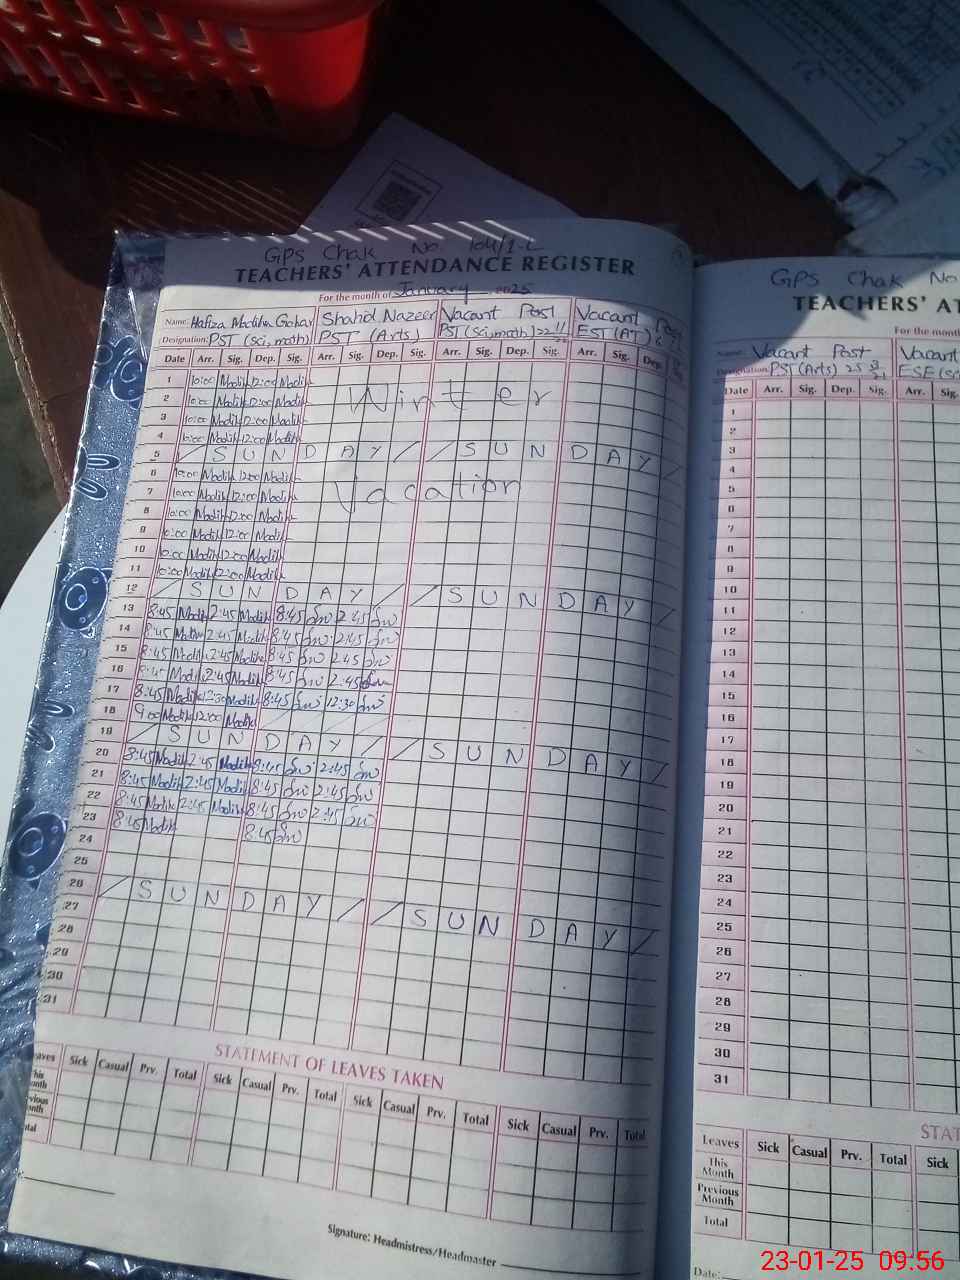 GPS Chak No. 104/1-L
TEACHERS' ATTENDANCE REGISTER
For the month of January 2025
Name: Hafiza Madiha Gohar Shahid Nazeer Vacant Post Vacant Post
Designation: PST (Sci, math) PST (Arts) PST (Sci, math) EST (AT)
Date Arr. Sig. Dep. Sig. Arr. Sig. Dep. Sig. Arr. Sig. Dep. Sig. Arr. Sig. Dep.
1 10:00 Madiha 12:00 Madiha
2 10:00 Madiha 12:00 Madiha Winter
3 10:00 Madiha 12:00 Madiha
4 10:00 Madiha 12:00 Madiha
5 / SUNDAY / / SUNDAY /
6 10:00 Madiha 12:00 Madiha
7 10:00 Madiha 12:00 Madiha Vacation
8 10:00 Madiha 12:00 Madiha
9 10:00 Madiha 12:00 Madiha
10 10:00 Madiha 12:00 Madiha
11 10:00 Madiha 12:00 Madiha
12 / SUNDAY / / SUNDAY /
13 8:45 Madiha 2:45 Madiha 8:45 2:45
14 8:45 Madiha 2:45 Madiha 8:45 2:45
15 8:45 Madiha 2:45 Madiha 8:45 2:45
16 8:45 Madiha 2:45 Madiha 8:45 2:45
17 8:45 Madiha 12:30 Madiha 8:45 12:30
18 9:00 Madiha 12:00 Madiha
19 / SUNDAY / / SUNDAY /
20 8:45 Madiha 2:45 Madiha 8:45 2:45
21 8:45 Madiha 2:45 Madiha 8:45 2:45
22 8:45 Madiha 2:45 Madiha 8:45 2:45
23 8:45 Madiha 8:45
24
25
26 / SUNDAY / / SUNDAY /
27
28
29
30
31
STATEMENT OF LEAVES TAKEN
eaves Sick Casual Prv. Total Sick Casual Prv. Total Sick Casual Prv. Total Sick Casual Prv. Total
This Month
vious Month
tal
Signature: Headmistress/Headmaster
GPS Chak No
TEACHERS' AT
For the month
Name: Vacant Post Vacant
Designation: PST (Arts) ESE (Sc
Date Arr. Sig. Dep. Sig. Arr. Sig.
1
2
3
4
5
6
7
8
9
10
11
12
13
14
15
16
17
18
19
20
21
22
23
24
25
26
27
28
29
30
31
STAT
Leaves Sick Casual Prv. Total Sick
This Month
Previous Month
Total
Date:
23-01-25 09:56